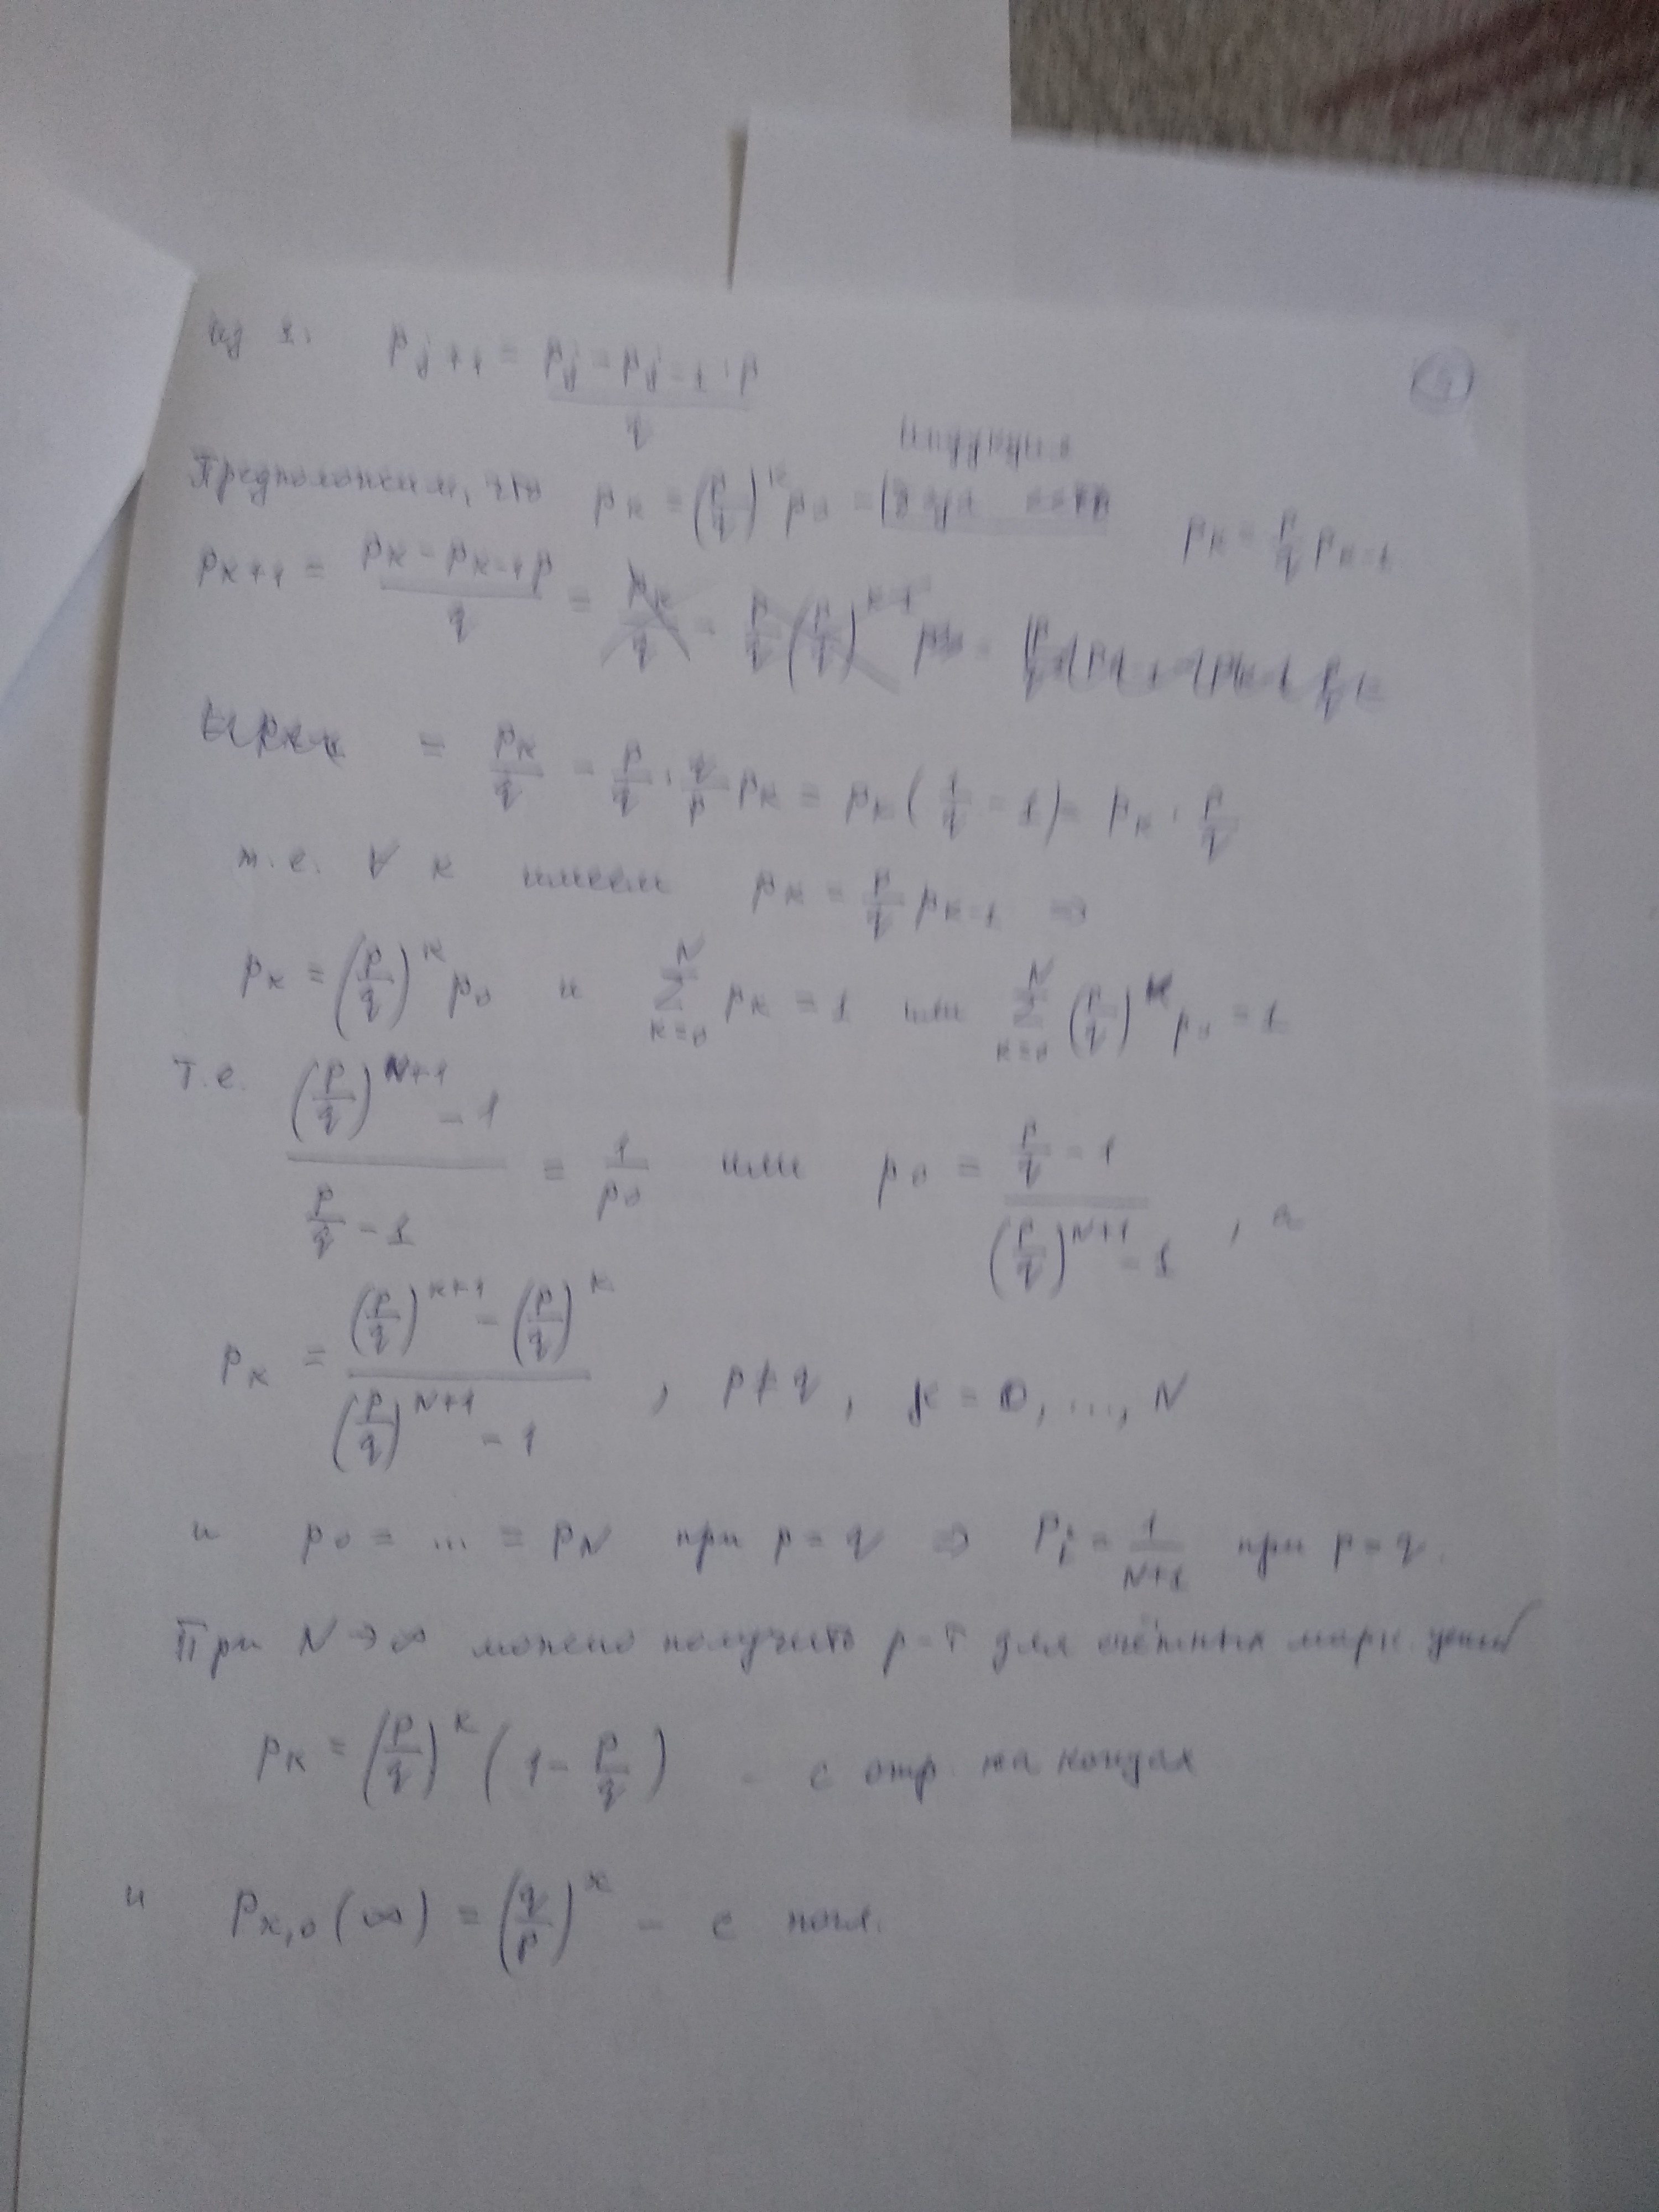 из 1. p_{j+1} = (p_j - p_{j-1}·p)/q
Предположим, что p_k = (p/q)^k p_0 = индукция p_k = p/q p_{k-1}
p_{k+1} = (p_k - p_{k-1}p)/q = p_k/q - p/q (p/q)^{k-1} p_0 =
= p_k/q - p/q · q/p p_k = p_k(1/q - 1) = p_k · p/q
т.е. ∀ k имеем p_k = p/q p_{k-1} ⇒
p_k = (p/q)^k p_0 и ∑_{k=0}^{N} p_k = 1 или ∑_{k=0}^{N} (p/q)^k p_0 = 1
т.е. ((p/q)^{N+1} - 1)/(p/q - 1) = 1/p_0 или p_0 = (p/q - 1)/((p/q)^{N+1} - 1), а
p_k = ((p/q)^{k+1} - (p/q)^k)/((p/q)^{N+1} - 1), p ≠ q, k = 0, ..., N
и p_0 = ... = p_N при p = q ⇒ P_i = 1/(N+1) при p = q.
При N → ∞ можно получить р-т для счётных марк. цепей
p_k = (p/q)^k (1 - p/q) - с отр. на концах
и P_{x,0}(∞) = (q/p)^x - с погл.